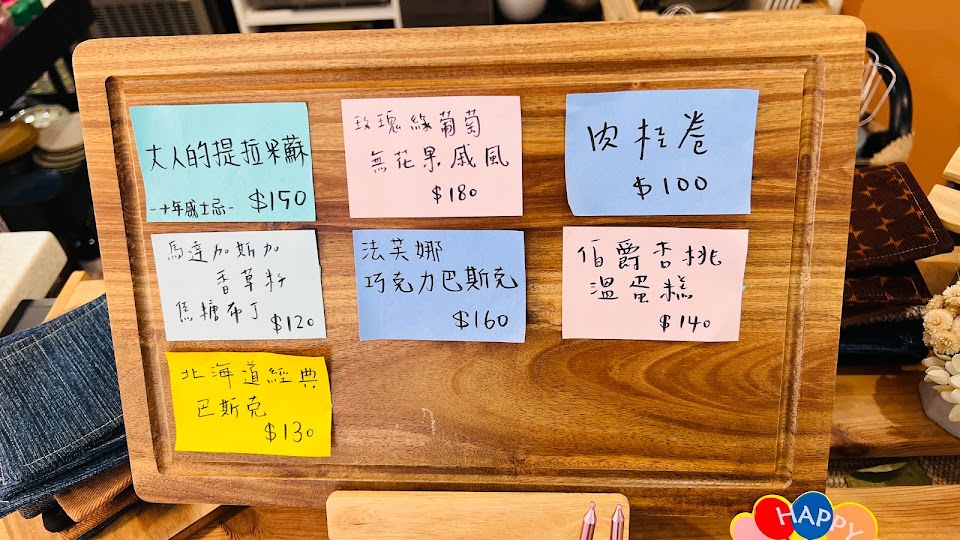 大人的提拉米蘇
-十年威士忌- $150
玫瑰綠葡萄
無花果戚風
$180
肉桂卷
$100
馬達加斯加
香草籽
焦糖布丁
$120
法芙娜
巧克力巴斯克
$160
伯爵杏桃
溫蛋糕
$140
北海道經典
巴斯克
$130
HAPPY